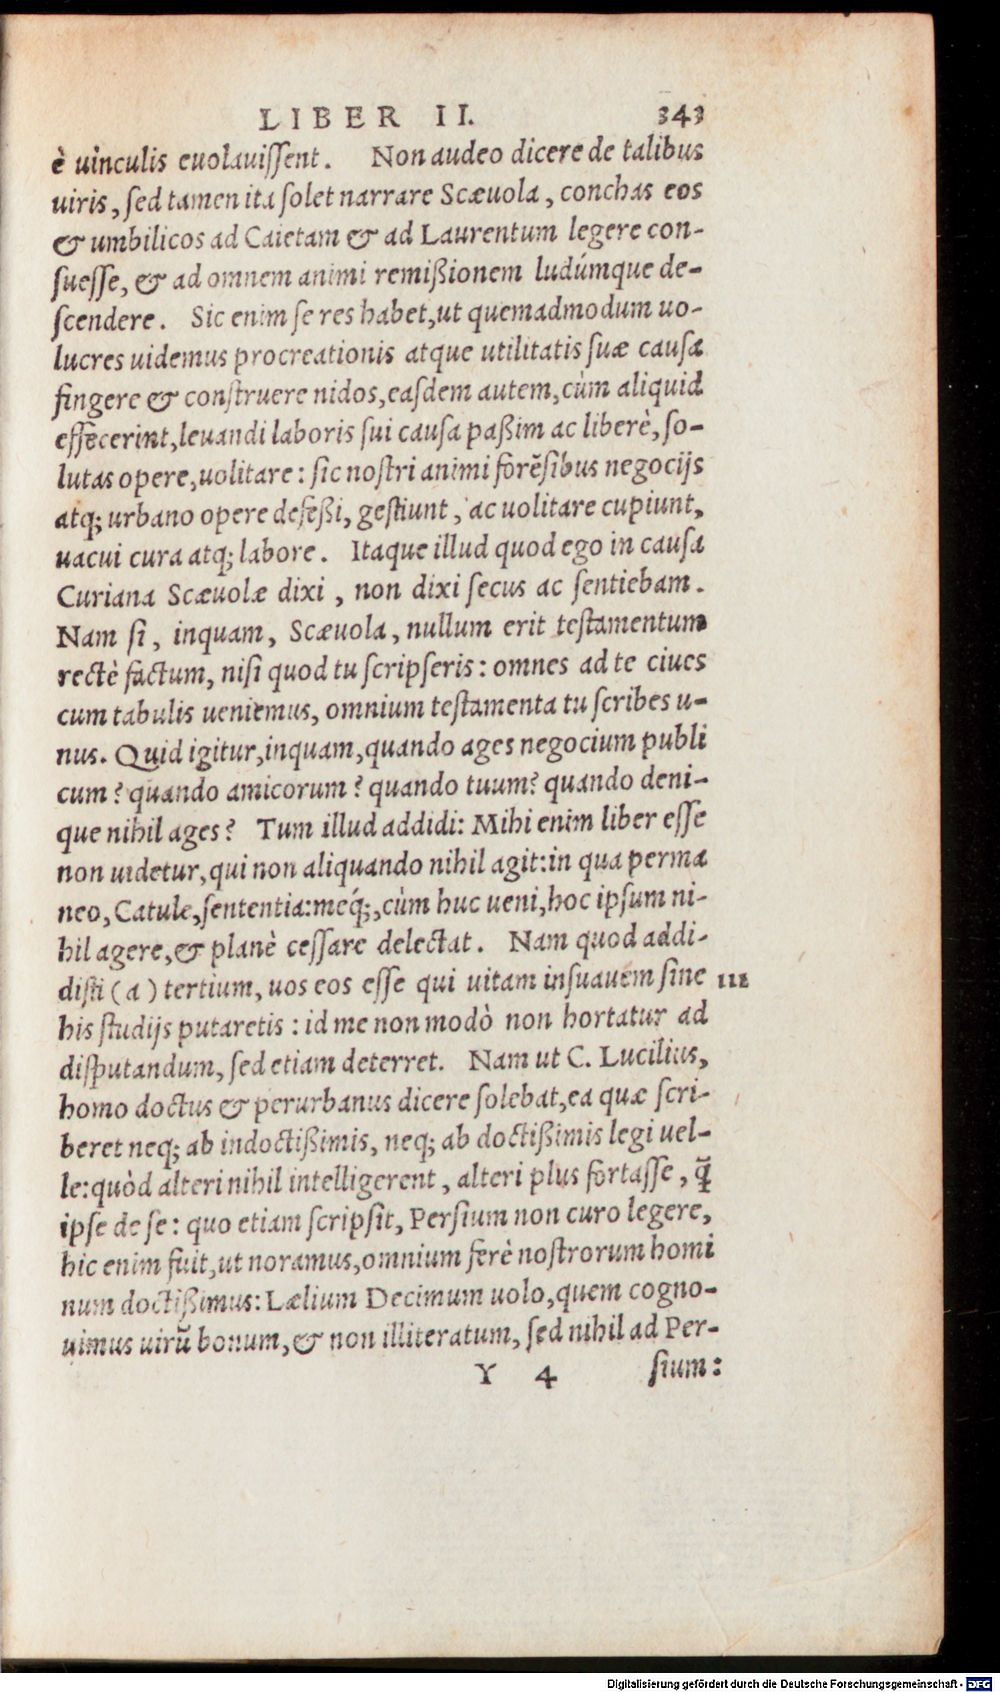 LIBER II. 343
è uinculis euolauissent. Non audeo dicere de talibus
uiris, sed tamen ita solet narrare Scæuola, conchas eos
& umbilicos ad Caietam & ad Laurentum legere con-
suesse, & ad omnem animi remißionem ludúmque de-
scendere. Sic enim se res habet, ut quemadmodum uo-
lucres uidemus procreationis atque utilitatis suæ causa
fingere & construere nidos, easdem autem, cùm aliquid
effecerint, leuandi laboris sui causa paßim ac liberè, so-
lutas opere, uolitare: sic nostri animi forēsibus negocijs
atq; urbano opere defeßi, gestiunt, ac uolitare cupiunt,
uacui cura atq; labore. Itaque illud quod ego in causa
Curiana Scæuolæ dixi, non dixi secus ac sentiebam.
Nam si, inquam, Scæuola, nullum erit testamentum
rectè factum, nisi quod tu scripseris: omnes ad te ciues
cum tabulis ueniemus, omnium testamenta tu scribes u-
nus. Quid igitur, inquam, quando ages negocium publi
cum? quando amicorum? quando tuum? quando deni-
que nihil ages? Tum illud addidi: Mihi enim liber esse
non uidetur, qui non aliquando nihil agit: in qua perma
neo, Catule, sententia: meq́;, cùm huc ueni, hoc ipsum ni-
hil agere, & planè cessare delectat. Nam quod addi-
disti (a) tertium, uos eos esse qui uitam insuauem sine III
his studijs putaretis: id me non modò non hortatur ad
disputandum, sed etiam deterret. Nam ut C. Lucilius,
homo doctus & perurbanus dicere solebat, ea quæ scri-
beret neq; ab indoctißimis, neq; ab doctißimis legi uel-
le: quòd alteri nihil intelligerent, alteri plus fortasse, q̃
ipse de se: quo etiam scripsit, Persium non curo legere,
hic enim fuit, ut noramus, omnium ferè nostrorum homi
num doctißimus: Lælium Decimum uolo, quem cogno-
uimus uirū bonum, & non illiteratum, sed nihil ad Per-
Y 4 sium:
Digitalisierung gefördert durch die Deutsche Forschungsgemeinschaft - DFG